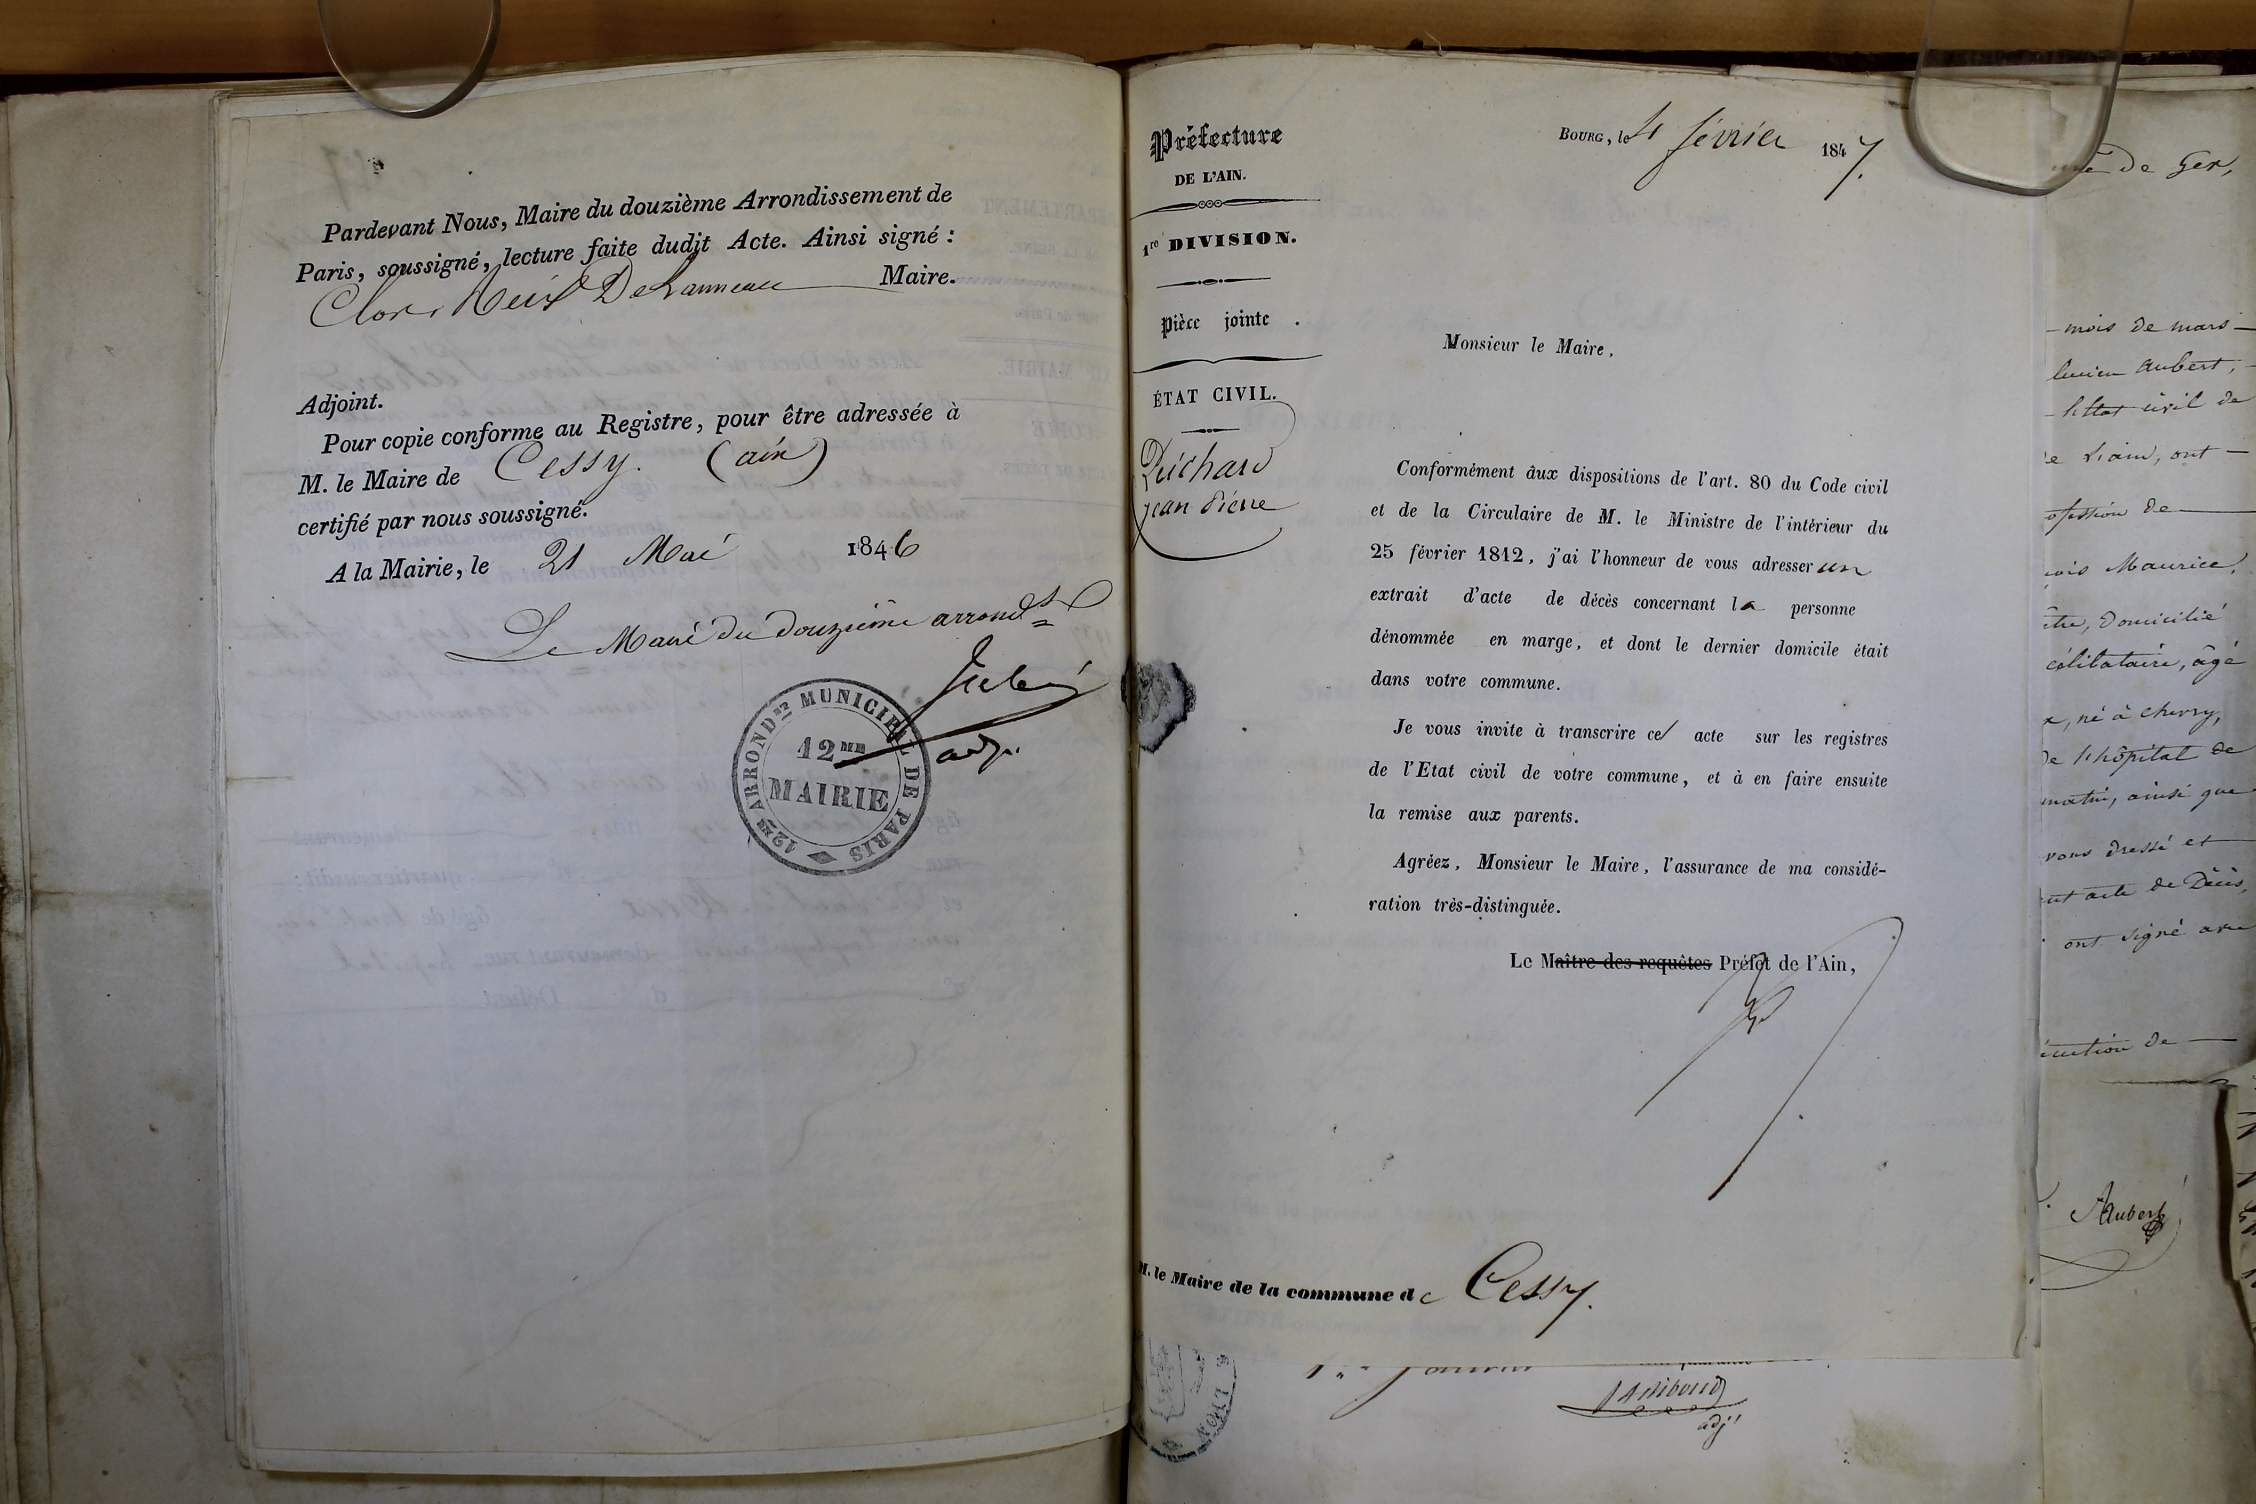 Pardevant Nous, Maire du douzième Arrondissement de
Paris, soussigné, lecture faite dudit Acte. Ainsi signé :
Maire.
Adjoint.
Pour copie conforme au Registre, pour être adressée à
M. le Maire de Cessy. (ain)
certifié par nous soussigné.
A la Mairie, le 21 Mai 1846
Le Maire du douzième arrondt
adj.
12me ARRONDnt MUNICIPAL DE PARIS
12ME
MAIRIE
Préfecture
DE L'AIN.
1re DIVISION.
Pièce jointe .
ÉTAT CIVIL.
jean Pierre
BOURG, le 4 février 1847.
Monsieur le Maire,
Conformément âux dispositions de l'art. 80 du Code civil
et de la Circulaire de M. le Ministre de l'intérieur du
25 février 1812, j'ai l'honneur de vous adresser un
extrait d'acte de décès concernant la personne
dénommée en marge, et dont le dernier domicile était
dans votre commune.
Je vous invite à transcrire cet acte sur les registres
de l'Etat civil de votre commune, et à en faire ensuite
la remise aux parents.
Agréez, Monsieur le Maire, l'assurance de ma considé-
ration très-distinguée.
Le Maître des requêtes Préfet de l'Ain,
M. le Maire de la commune de Cessy.
adjt
de Gex,
mois de mars
lucien Aubert,
l'Etat civil de
l'ain, ont
ofession de
Maurice,
domicilié
célibataire, âgé
né à chevry,
de l'hôpital de
matin, ainsi que
avons dressé et
acte de Décès,
ont signé avec
de
Aubert